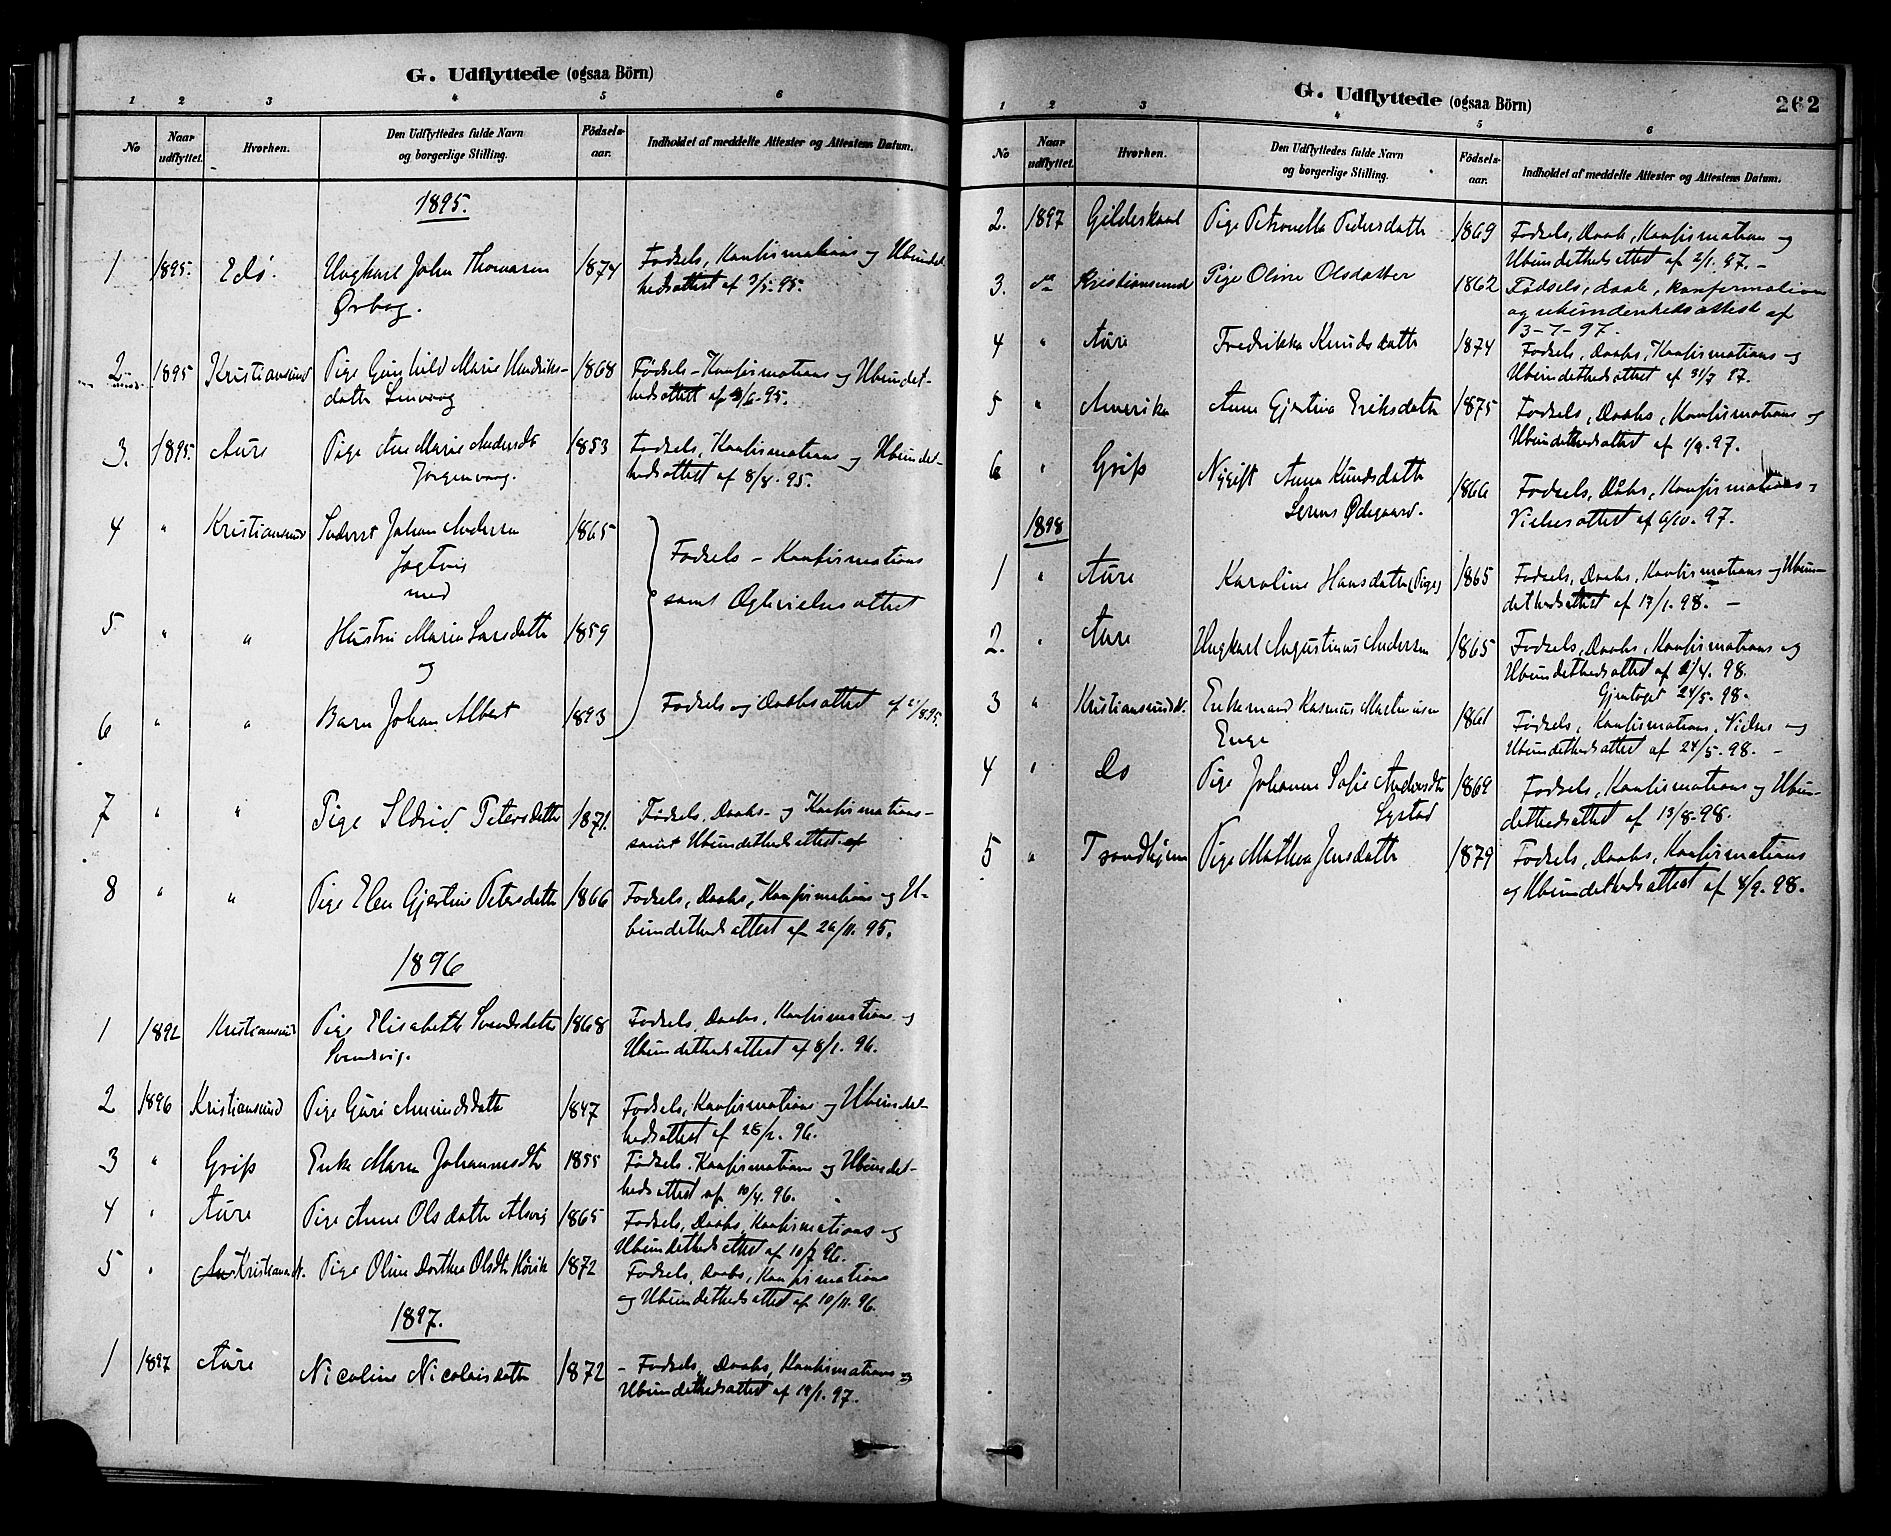 G. Udflyttede (ogsaa Börn)
1 2 3 4 5 6
No Naar udflyttet. Hvorhen. Den Udflyttedes fulde Navn og borgerlige Stilling. Födsels-aar. Indholdet af meddelte Attester og Attestens Datum.
1895.
1 1895. Edø. Ungkarl John Thomassen 1874 Fødsels, Konfirmations og Ubundet-
Ørbog. hedsattest af 3/5-95.
2 1895 Kristiansund Pige Gunhild Marie Hendriks- 1868 Fødsels-Konfirmations og Ubundet-
datter hedsattest af 3/6-95.
3. 1895. Aure Pige Ane Marie Andersdt 1853 Fødsels, Konfirmations og Ubundet-
Jørgenvaag. hedsattest af 8/8. 95.
4 " Kristiansund Johan Andersen 1865
Fødsels - Konfirmations
med
samt Ægtevielsesattest
5 " " Hustru Maria Larsdatter 1859
og
6 " " Barn Johan Albert 1893 Fødsels og Daabsattest af /8 95.
7 " " Pige Ildrid Petersdatter 1871. Fødsels, Daabs- og Konfirmations-
samt Ubundethedsattest af
8 " " Pige Elen Gjertine Petersdatter 1866 Fødsels, Daabs, Konfirmations og U-
bundethedsattest af 26/11. 95.
1896
1 1892 Kristiansund Pige Elisabeth Svendsdatter 1868 Fødsels, Daabs, Konfirmations og
Svendsvig. Ubundethedsattest af 8/1. 96.
2 1896 Kristiansund Pige Guri Amundsdatter 1847 Fødsels, Konfirmations og Ubundet-
hedsattest af 28/2. 96.
3 " Grip Enke Maren Johannesdtr 1855 Fødsels. Konfirmations og Ubundet-
hedsattest af 10/4. 96.
4 " Aure Pige Anne Olsdatter Alsvig 1865 Fødsels, Daabs, Konfirmations og
Ubundethedsattest af 10/7 96.
5 " Au Kristiansund N. Pige Oline Dorthea Olsdtr 1872 Fødsels, Daabs, Konfirmations
og Ubundethedsattest af 10/11. 96.
1897.
1 1897 Aure Nicoline Nicolaisdatter 1872 - Fødsels, Daabs, Konfirmations og
Ubundethedsattest af 19/1. 97.
G. Udflyttede (ogsaa Börn) 262
1 2 3 4 5 6
No Naar udflyttet. Hvorhen. Den Udflyttedes fulde Navn og borgerlige Stilling. Födsels-aar. Indholdet af meddelte Attester og Attestens Datum.
2. 1897 Gildeskaal Pige Petronella Pedersdatter 1869 Fødsels, Daab, Konfirmation og
Ubundethedsattest af 2/1. 97. -
3. do Kristiansund Pige Oline Olsdatter 1862 Fødsels, daab, konfirmation
og ubundenhedsattest af
3-7-97.
4 " Aure Fredrikke Knudsdatter 1874 Fødsels, Daabs, Konfirmations og
Ubundethedsattest af 31/7 97.
5 " Amerika Anne Gjertina Eriksdatter 1875 Fødsels, Daabs, Konfirmations og
Ubundethedsattest af 1/9. 97.
6 " Grip Nygift Anna Knudsdatter 1866 Fødsels, Dåbs, Konfirmations,
Ødegaard. Vielsesattest af 6/10-97.
1898
1 " Aure Karoline Hansdatter (Pige) 1865 Fødsels, Daabs, Konfirmations og Ubun-
dethedsattest af 19/1. 98. -
2. " Aure Ungkarl Augustinus Andersen 1865 Fødsels, Daabs, Konfirmations og
Ubundethedsattest af 2/4. 98.
Gjentaget 24/5-98.
3 " Kristiansund N. Enkemand Rasmus Martinusen 1861 Fødsels, Konfirmations, Vielses og
Enge Ubundethedsattest af 24/5. 98. -
4 " Do Pige Johanne Sofie Andersdtr 1869 Fødsels, Konfirmations og Ubun-
dethedsattest af 13/8-98.
5 " Trondhjem Pige Mathea Jensdatter 1879 Fødsels, Daabs, Konfirmations
og Ubundethedsattest af 8/9. 98.